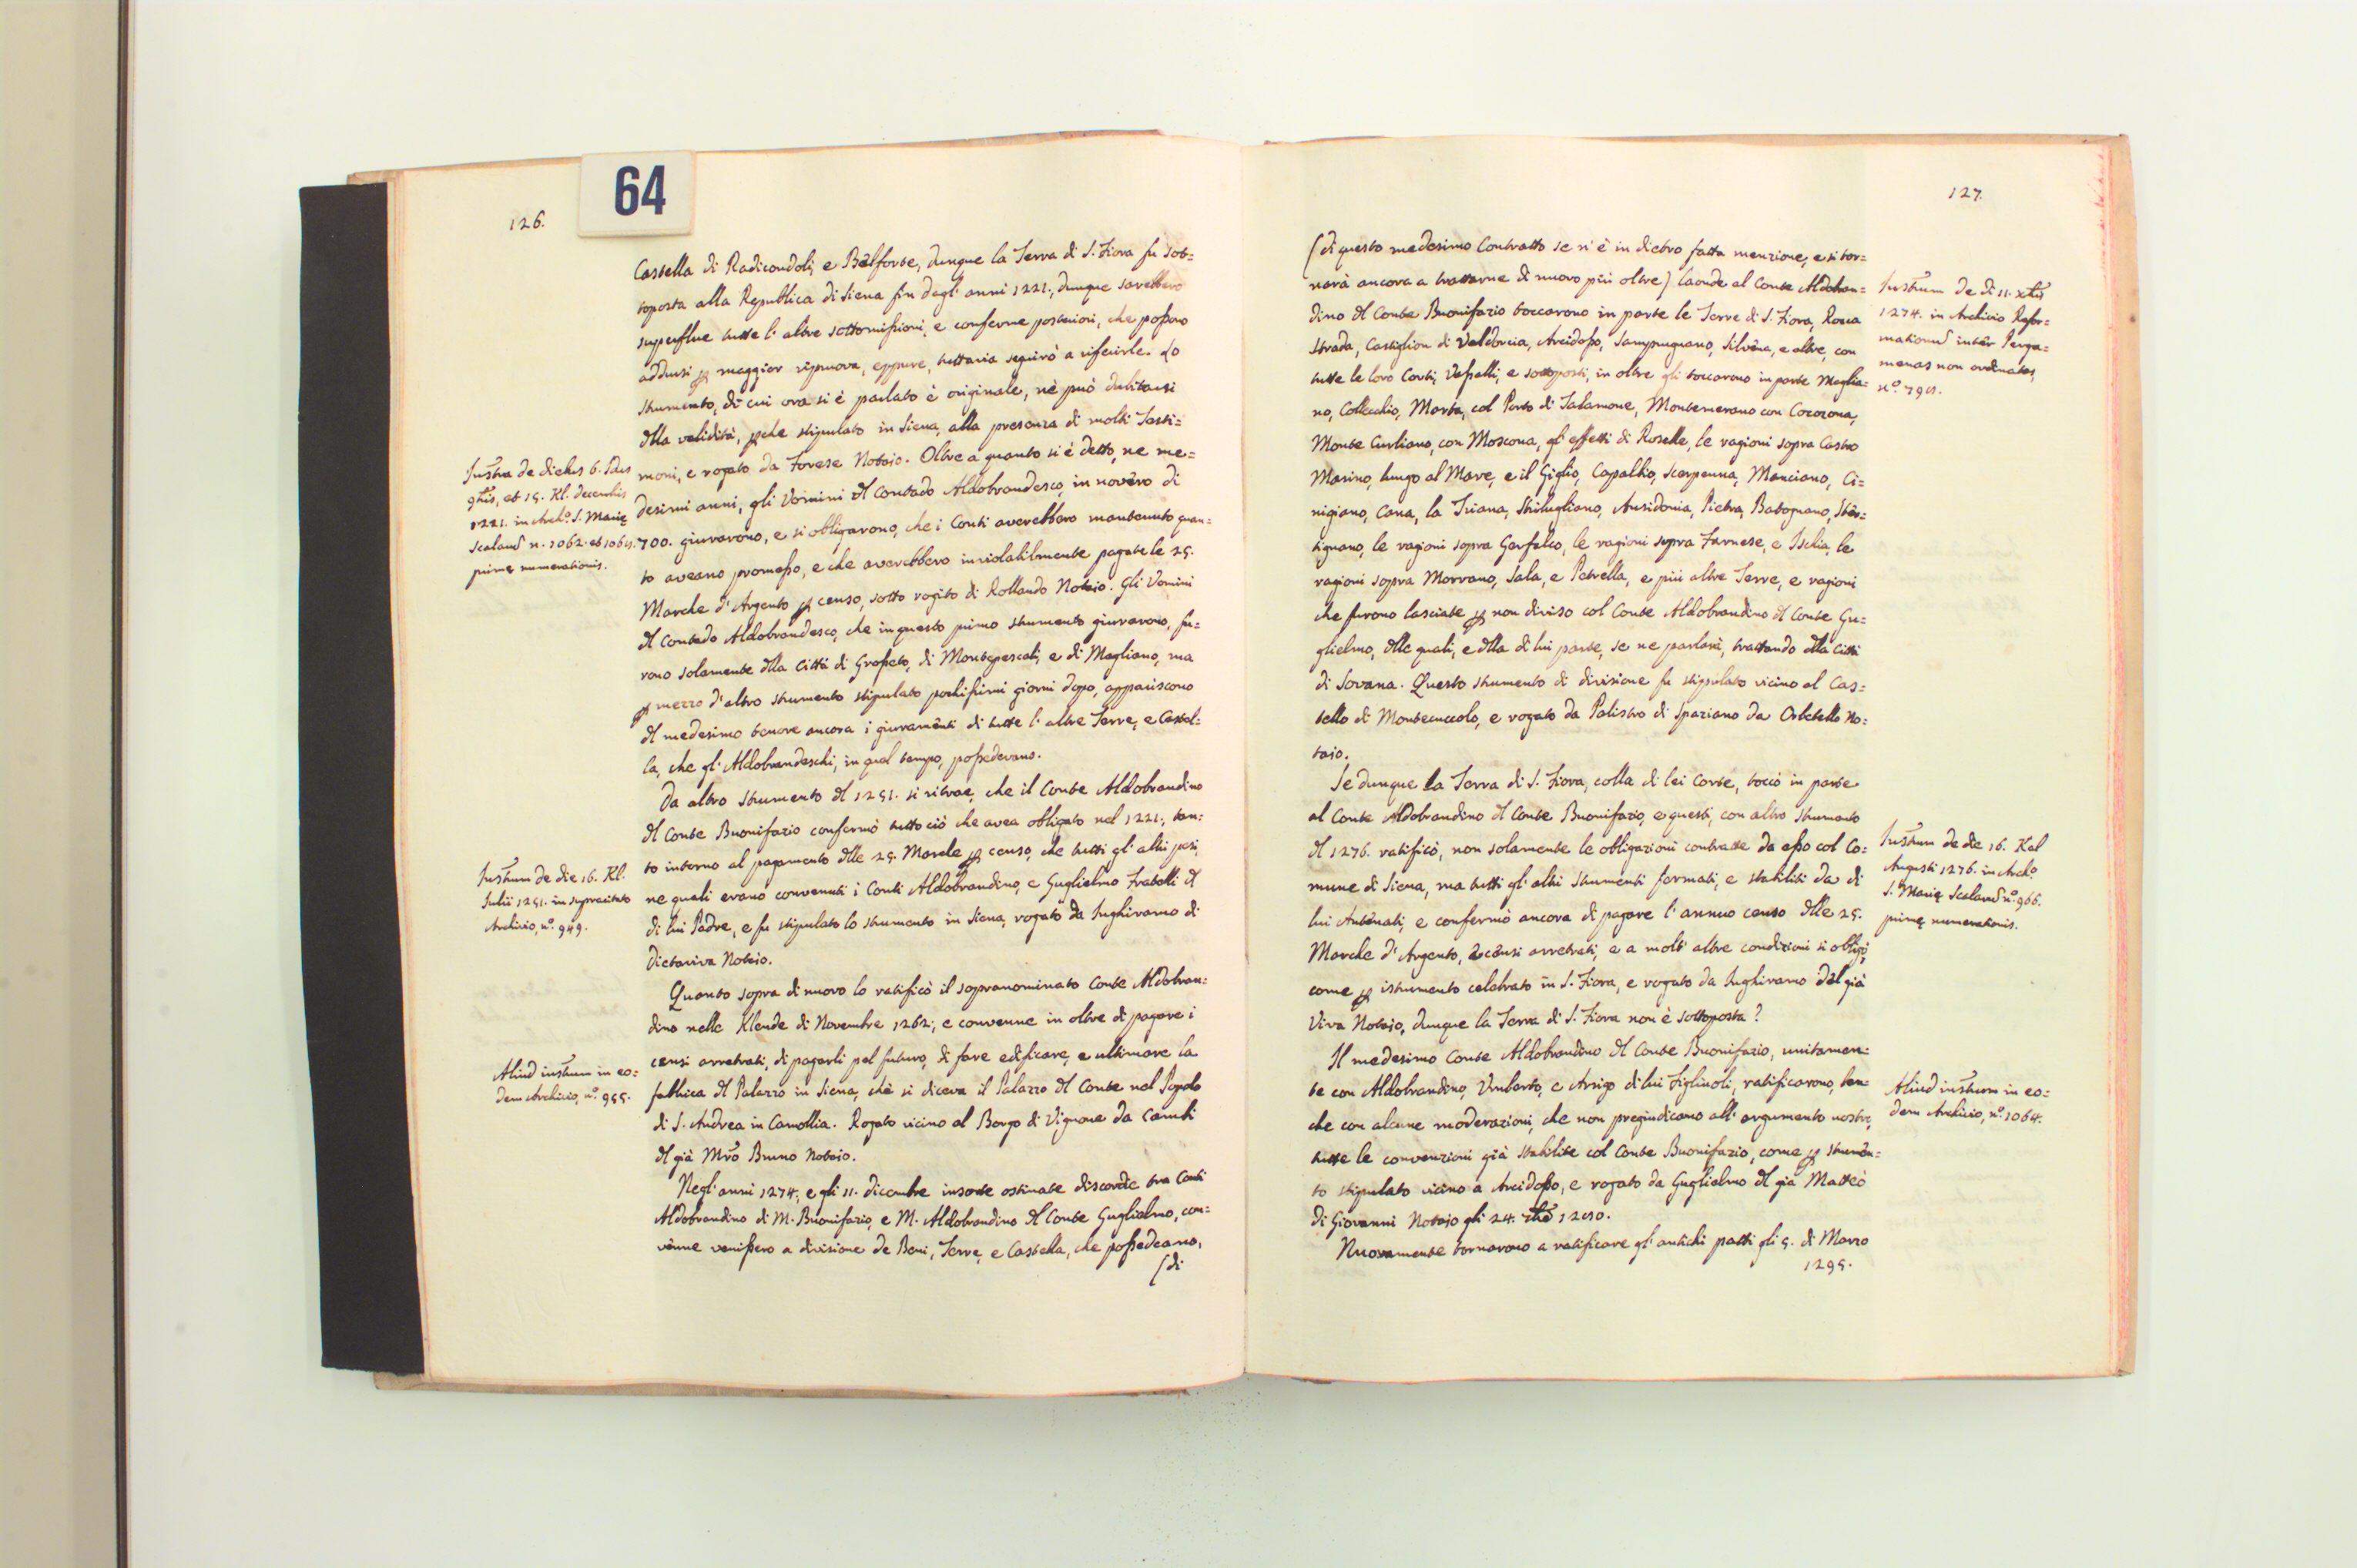 64
126.
Castella di Radicondoli, e Belforte, dunque la Terra di S. Fiora fu sot=
toposta alla Republica di Siena fin dagl' anni 1221., dunque sarebbero
superflue tutte l' altre sottomissioni, e conferme posteriori, che possono
addursi per maggior riprouova, eppure, tuttavia seguirò a riferirle. Lo
strumento, di cui ora si è parlato è originale, nè può dubitarsi
della validità, perche stipulato in Siena, alla presenza di molti Testi=
moni, e rogato da Forese Notaio. Oltre a quanto si è detto, ne me=
desimi anni, gli Uomini del Contado Aldobrandesco, in novero di
700. giurarono, e si obligarono, che i Conti averebbero mantenuto quan=
to aveano promesso, e che averebbero inviolabilmente pagate le 25.
Marche d' Argento per censo, sotto rogito di Rollando Notaio. Gli Uomini
del Contado Aldobrandesco, che in questo primo strumento giurarono, fu=
rono solamente della Città di Grosseto, di Montepescali, e di Magliano, ma
per mezzo d' altro strumento stipulato pochissimi giorni dopo, appariscono
del medesimo tenore ancora i giuramenti di tutte l' altre Terre, e Castel=
la, che gl' Aldobrandeschi, in quel tempo, possedevano.
Da altro strumento del 1251. si ritrae, che il Conte Aldobrandino
del Conte Buonifazio confermò tutto ciò che avea obligato nel 1221., tan=
to intorno al pagamento delle 25. Marche per censo, che tutti gl' altri pesi,
ne quali erano convenuti i Conti Aldobrandino, e Guglielmo Fratelli del
di lui Padre, e fu stipulato lo strumento in Siena, rogato da Inghiramo di
Dietaviva Notaio.
Quanto sopra di nuovo lo ratificò il sopranominato Conte Aldobran=
dino nelle Klende di Novembre 1262., e convenne in oltre di pagare i
censi arretrati, di pagarli pel futuro, di fare edificare, e ultimare la
fabbrica del Palazzo in Siena, che si diceva il Palazzo del Conte nel Popolo
di S. Andrea in Camollia. Rogato vicino al Borgo di Vignone da Cambi
del già Mro Bruno Notaio.
Negl' anni 1274., e gli 11. dicembre insorte ostinate discordie tra Conti
Aldobrandino di M. Buonifazio, e M. Aldobrandino del Conte Guglielmo, con=
venne venissero a divisione de Beni, Terre, e Castella, che possedeano,
(di
Instra de diebus 6. Idus
9bris, et 15. Kl. decembris
1221. in Archo. S. Marię
Scalarum n. 1062. et 1064.
primę numerationis.
Instrum de die 16. Kl.
Julii 1251. in supracitato
Archivio, no. 949.
Aliud instrum in eo=
dem Archivio, no. 955.
127.
(di questo medesimo Contratto se n' è in dietro fatta menzione, e si tor=
narà ancora a trattarne di nuovo più oltre) laonde al Conte Aldobran=
dino del Conte Buonifazio toccarono in parte le Terre di S. Fiora, Rocca
Strada, Castiglion di Valdorcia, Arcidosso, Sampugnano, Silvena, e altre, con
tutte le loro Corti, Vassalli, e sottoposti, in oltre gli toccarono in parte Maglia=
no, Collecchio, Marta, col Porto di Talamone, Montemerano con Cocozona,
Monte Curliano, con Moscona, gl' effetti di Roselle, le ragioni sopra Castro
Marino, lungo al Mare, e il Giglio, Capalbio, Scarpenna, Manciano, Ci=
nigiano, Cana, la Triana, Stribugliano, Ansidonia, Pietra, Batognano, Ster=
tignano, le ragioni sopra Garfalco, le ragioni sopra Farnese, e Ischia, le
ragioni sopra Morrano, Sala, e Petrella, e più altre Terre, e ragioni
che furono lasciate per non diviso col Conte Aldobrandino del Conte Gu=
glielmo, delle quali, e della di lui parte, se ne parlarà, trattando della Città
di Sovana. Questo strumento di divisione fu stipulato vicino al Cas=
tello di Montecuccolo, e rogato da Palistro di Spaziano da Orbetello No=
taio.
Se dunque la Terra di S. Fiora, colla di lei Corte, toccò in parte
al Conte Aldobrandino del Conte Buonifazio, e questi, con altro strumento
del 1276. ratificò, non solamente le obligazioni contratte da esso col Co=
mune di Siena, ma tutti gl' altri strumenti formati, e stabiliti da di
lui Antenati, e confermò ancora di pagare l' annuo censo delle 25.
Marche d' Argento, e censi arretrati, e a molt' altre condizioni si obligò,
come per istrumento celebrato in S. Fiora, e rogato da Inghiramo del già
Viva Notaio, dunque la Terra di S. Fiora non è sottoposta?
Il medesimo Conte Aldobrandino del Conte Buonifazio, unitamen=
te con Aldobrandino, Umberto, e Arrigo di lui Figliuoli, ratificarono, ben=
che con alcune moderazioni, che non pregiudicano all' argumento nostro,
tutte le convenzioni già stabilite col Conte Buonifazio, come per strumen=
to stipulato vicino a Arcidosso, e rogato da Guglielmo del già Matteo
di Giovanni Notaio gli 24. 1280.
Nuovamente tornarono a ratificare gl' antichi patti gli 5. di Marzo
1295.
Instrum de di 11. xbris
1274. in Archivio Refor=
mationum inter Perga=
menas non ordinatas,
no. 798.
Instrum de die 16. Kal
Augusti 1276. in Archo.
S. Marię Scalarum no. 966.
primę numerationis.
Aliud instrum in eo=
dem Archivio, no. 1064.